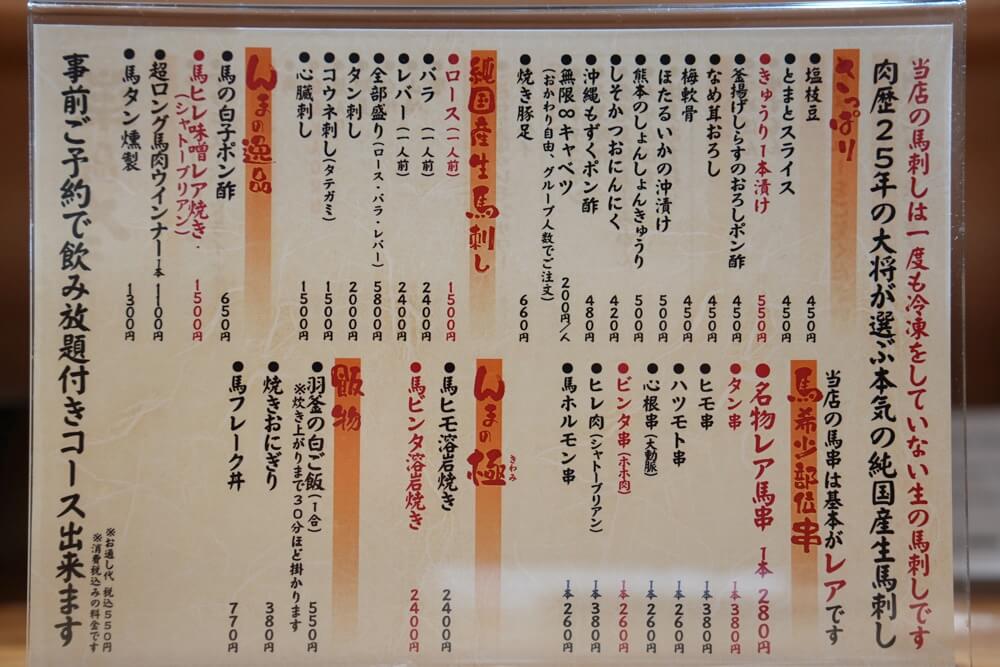 当店の馬刺しは一度も冷凍をしていない生の馬刺しです
肉歴25年の大将が選ぶ本気の純国産生馬刺し
さっぱり
●塩枝豆 450円
●とまとスライス 450円
●きゅうり1本漬け 550円
●釜揚げしらすのおろしポン酢 450円
●なめ茸おろし 450円
●梅軟骨 450円
●ほたるいかの沖漬け 500円
●熊本のしょんしょんきゅうり 500円
●しそかつおにんにく 420円
●沖縄もずくポン酢 480円
●無限∞キャベツ 200円/人
(おかわり自由、グループ人数でご注文)
●焼き豚足 660円
純国産生馬刺し
●ロース(一人前) 1500円
●バラ(一人前) 2400円
●レバー(一人前) 2400円
●全部盛り(ロース・バラ・レバー) 5800円
●タン刺し 2000円
●コウネ刺し(タテガミ) 1500円
●心臓刺し 1500円
んまの逸品
●馬の白子ポン酢 650円
●馬ヒレ味噌レア焼き 1500円
(シャトーブリアン)
●超ロング馬肉ウインナー1本 1100円
●馬タン燻製 1300円
当店の馬串は基本がレアです
馬希少部位串
●名物レア馬串 1本 280円
●タン串 1本380円
●ヒモ串 1本380円
●ハツモト串 1本260円
●心根串(大動脈) 1本260円
●ビンタ串(ホホ肉) 1本260円
●ヒレ肉(シャトーブリアン) 1本380円
●馬ホルモン串 1本260円
んまの極
きわみ
●馬ヒモ溶岩焼き 2400円
●馬ビンタ溶岩焼き 2400円
飯物
●羽釜の白ご飯(1合) 550円
※炊き上がりまで30分ほど掛かります
●焼きおにぎり 380円
●馬フレーク丼 770円
事前ご予約で飲み放題付きコース出来ます
※お通し代 税込550円
※消費税込みの料金です